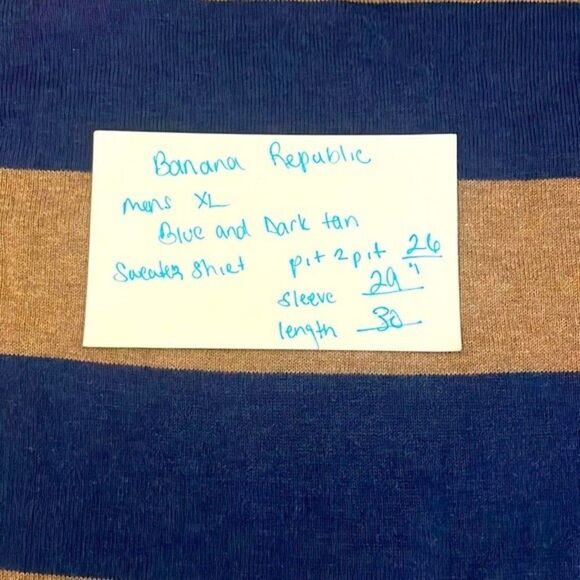 Banana Republic
mens XL
Blue and Dark tan
Sweater Shirt
pit 2 pit 26"
sleeve 29"
length 30